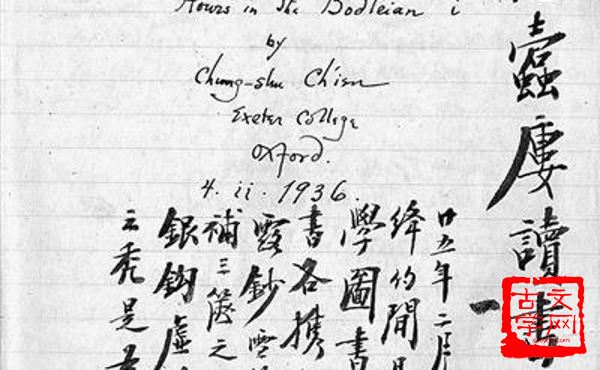 Hours in the Bodleian i
by
Chung-shu Ch'ien
Exeter College
Oxford.
4. ii. 1936.
蠹廔讀書
一
廿五年二月
絳約間日
學圖書
書各攜
露鈔雪
補三篋之
銀鉤虛
之禿是
古文学网